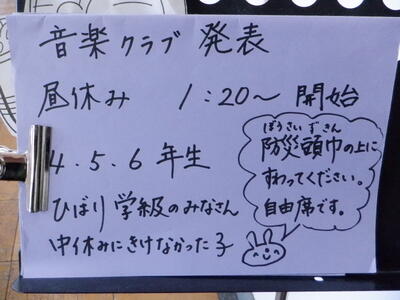 音楽クラブ 発表
昼休み 1:20〜 開始
4.5.6年生
ひばり学級のみなさん
中休みにきけなかった子
ぼうさいずきん
防災頭巾の上に
すわってください。
自由席です。